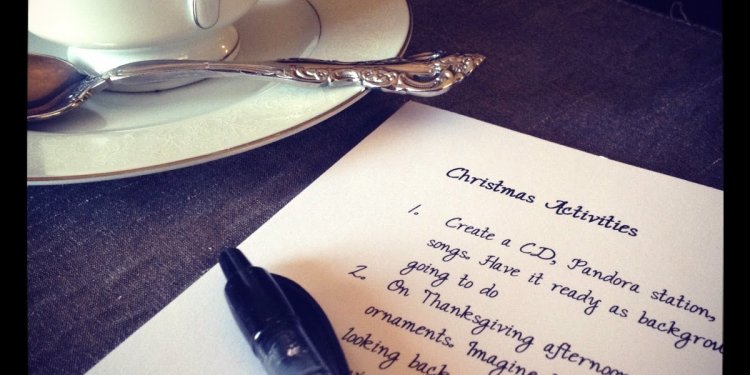 Christmas Activities
1. Create a CD, Pandora station,
songs. Have it ready as backgrou
going to do
2. On Thanksgiving afternoon
ornaments. Imagine
looking back